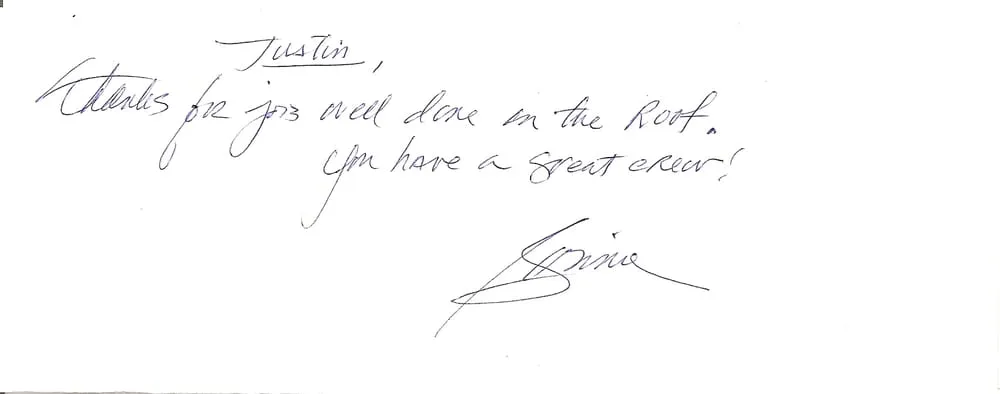 Justin,
Thanks for job well done on the Roof.
You have a great crew!